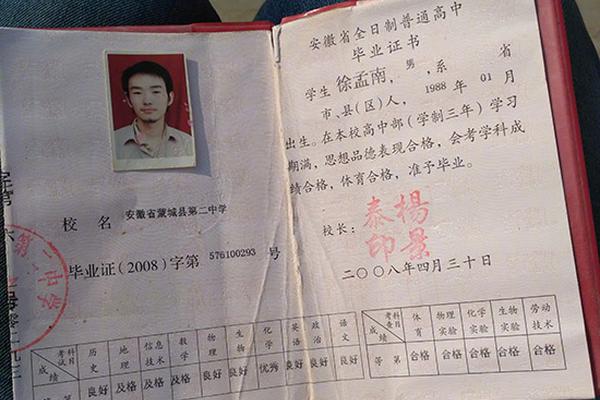 校名 安徽省蒙城县第二中学
毕业证(2008)字第 576100293 号
第二中学
考试科目 历史 地理 信息技术 数学 物理 生物 化学 英语 政治 语文
成绩 良好 及格 及格 及格 良好 良好 优秀 良好 良好 良好
安徽省全日制普通高中
毕业证书
学生 徐孟南,男,系 省
市、县(区)人,1988 年 01 月
出生。在本校高中部(学制三年)学习
期满,思想品德表现合格,会考学科成
绩合格,体育合格,准予毕业。
校长: 杨景泰印
二〇〇八年四月三十日
考查科目 体育 物理实验 化学实验 生物实验 劳动技术
成绩 等第 合格 合格 合格 合格 合格